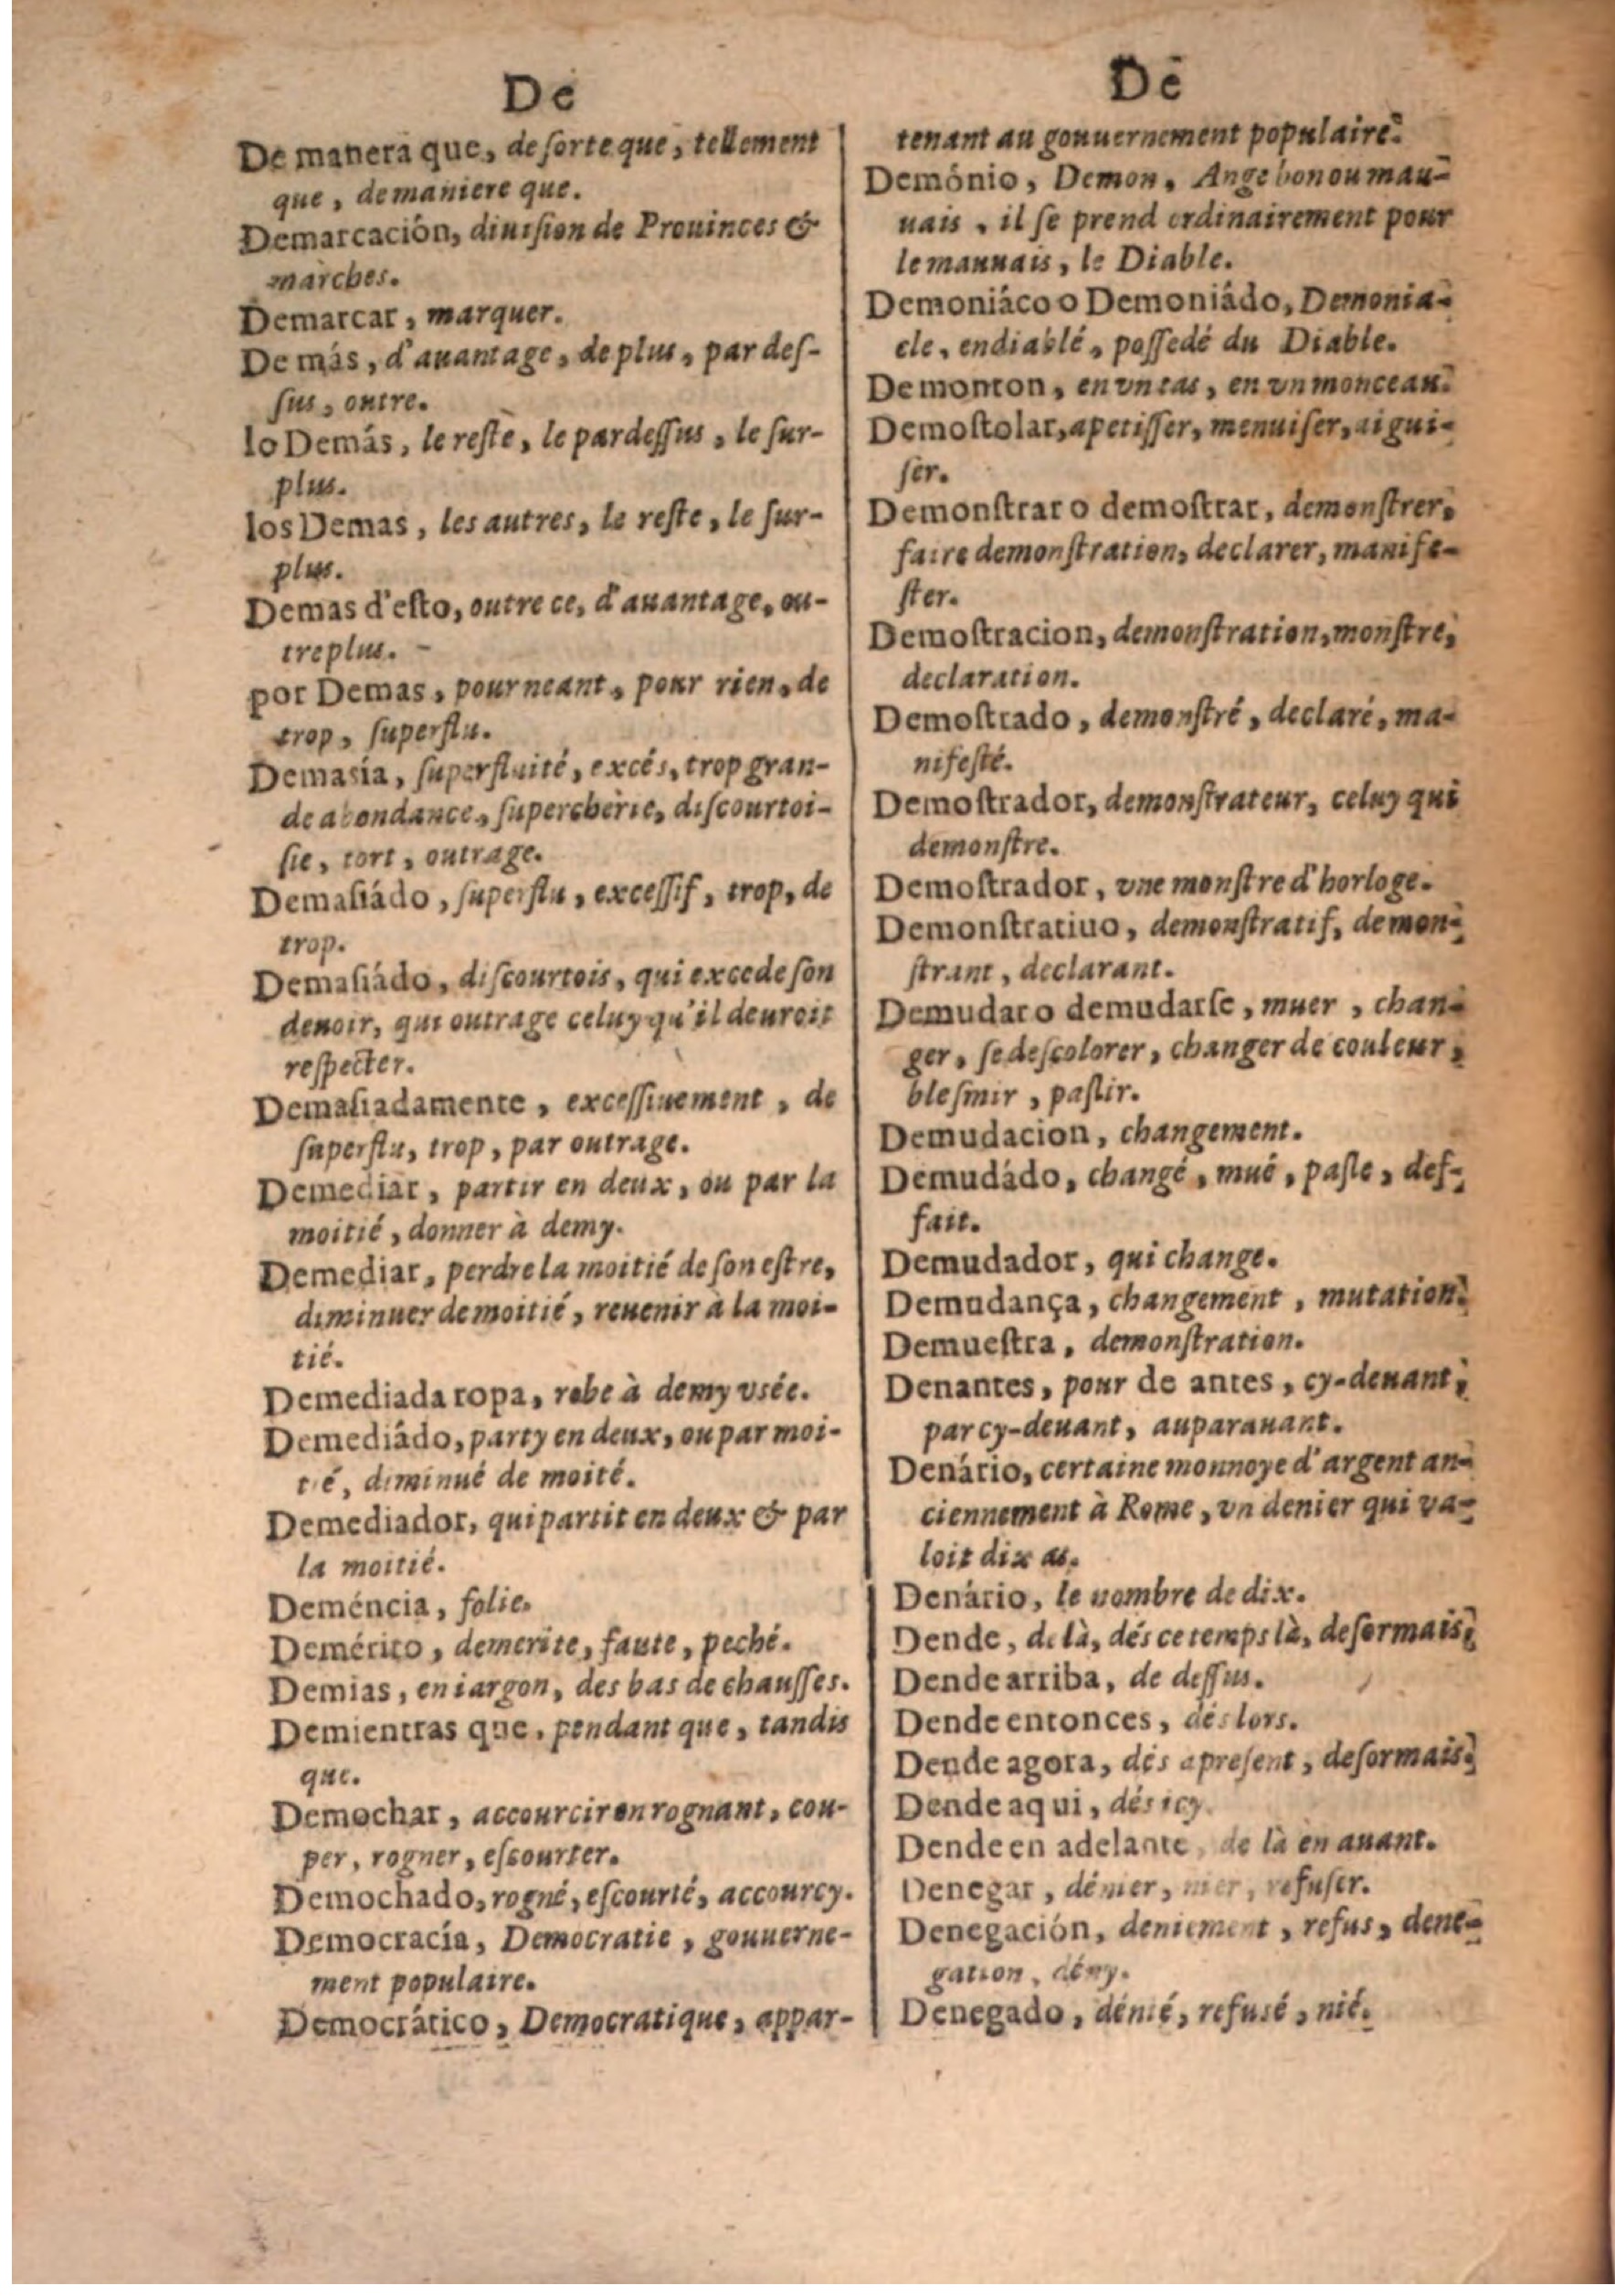 De
De manera que, de sorte que, tellement
que, de maniere que.
Demarcación, diuision de Prouinces &
marches.
Demarcar, marquer.
De más, d'auantage, de plus, par des-
sus, outre.
lo Demás, le reste, le pardessus, le sur-
plus.
los Demas, les autres, le reste, le sur-
plus.
Demas d'esto, outre ce, d'auantage, ou-
tre plus.
por Demas, pour neant, pour rien, de
trop, superflu.
Demasía, superfluité, excés, trop gran-
de abondance, supercherie, discourtoi-
sie, tort, outrage.
Demasiádo, superflu, excessif, trop, de
trop.
Demasiádo, discourtois, qui excede son
deuoir, qui outrage celuy qu'il deuroit
respecter.
Demasiadamente, excessiuement, de
superflu, trop, par outrage.
Demediar, partir en deux, ou par la
moitié, donner à demy.
Demediar, perdre la moitié de son estre,
diminuer de moitié, reuenir à la moi-
tié.
Demediada ropa, robe à demy vsée.
Demediádo, party en deux, ou par moi-
tié, diminué de moité.
Demediador, qui partit en deux & par
la moitié.
Deméncia, folie.
Demérito, demerite, faute, peché.
Demias, en iargon, des bas de chausses.
Demientras que, pendant que, tandis
que.
Demochar, accourcir en rognant, cou-
per, rogner, escourter.
Demochado, rogné, escourté, accourcy.
Democracía, Democratie, gouuerne-
ment populaire.
Democrático, Democratique, appar-
De
tenant au gouuernement populaire.
Demónio, Demon, Ange bon ou mau-
uais, il se prend ordinairement pour
le mauuais, le Diable.
Demoniáco o Demoniádo, Demonia-
cle, endiablé, possedé du Diable.
De monton, en vn tas, en vn monceau.
Demostolar, apetisser, menuiser, aigui-
ser.
Demonstrar o demostrar, demonstrer,
faire demonstration, declarer, manife-
ster.
Demostracion, demonstration, monstre,
declaration.
Demostrado, demonstré, declaré, ma-
nifesté.
Demostrador, demonstrateur, celuy qui
demonstre.
Demostrador, vne monstre d'horloge.
Demonstratiuo, demonstratif, demon-
strant, declarant.
Demudar o demudarse, muer, chan-
ger, se descolorer, changer de couleur,
blesmir, paslir.
Demudacion, changement.
Demudádo, changé, mué, pasle, def-
fait.
Demudador, qui change.
Demudança, changement, mutation.
Demuestra, demonstration.
Denantes, pour de antes, cy-deuant,
par cy-deuant, auparauant.
Denário, certaine monnoye d'argent an-
ciennement à Rome, vn denier qui va-
loit dix as.
Denário, le nombre de dix.
Dende, de là, dés ce temps là, desormais,
Dende arriba, de dessus.
Dende entonces, dés lors.
Dende agora, dés apresent, desormais.
Dende aqui, dés icy.
Dende en adelante, de là en auant.
Denegar, dénier, nier, refuser.
Denegación, deniement, refus, dene-
gation, dény.
Denegado, dénié, refusé, nié.